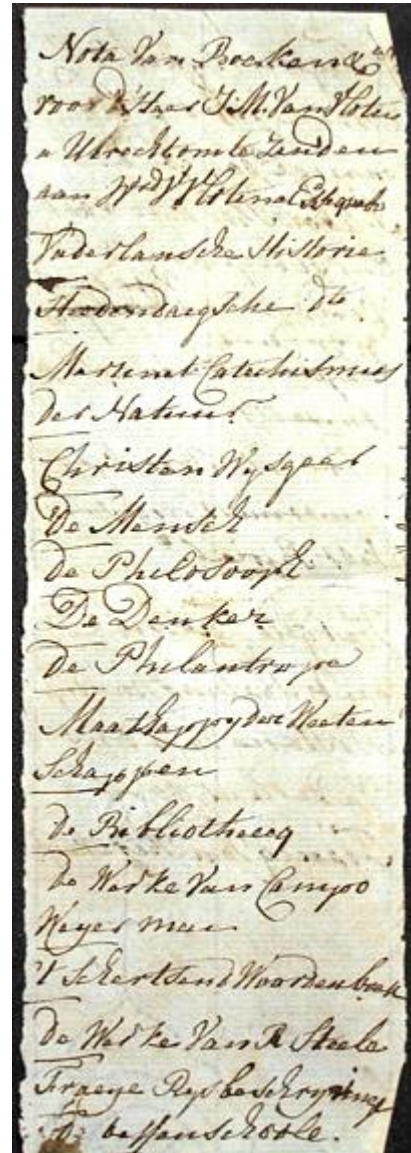 Nota Van Boeken &
voor d'Heer J.M. Van Vloten
a Utrecht om te Zenden
aan
Vaderlansche Historie
Heedendaegsche do
Martinet Catechismus
der Natuur
Christen Wysgeer
De Mensch
de Philosooph
De Denker
de Philantrope
Maatschappy der Weeten
schappen
de Bibliotheecq
de Werke Van Campo
Weyerman
't schertsend Woordenboek
de Werke Van R Steele
Fraeye Rysbeschryving